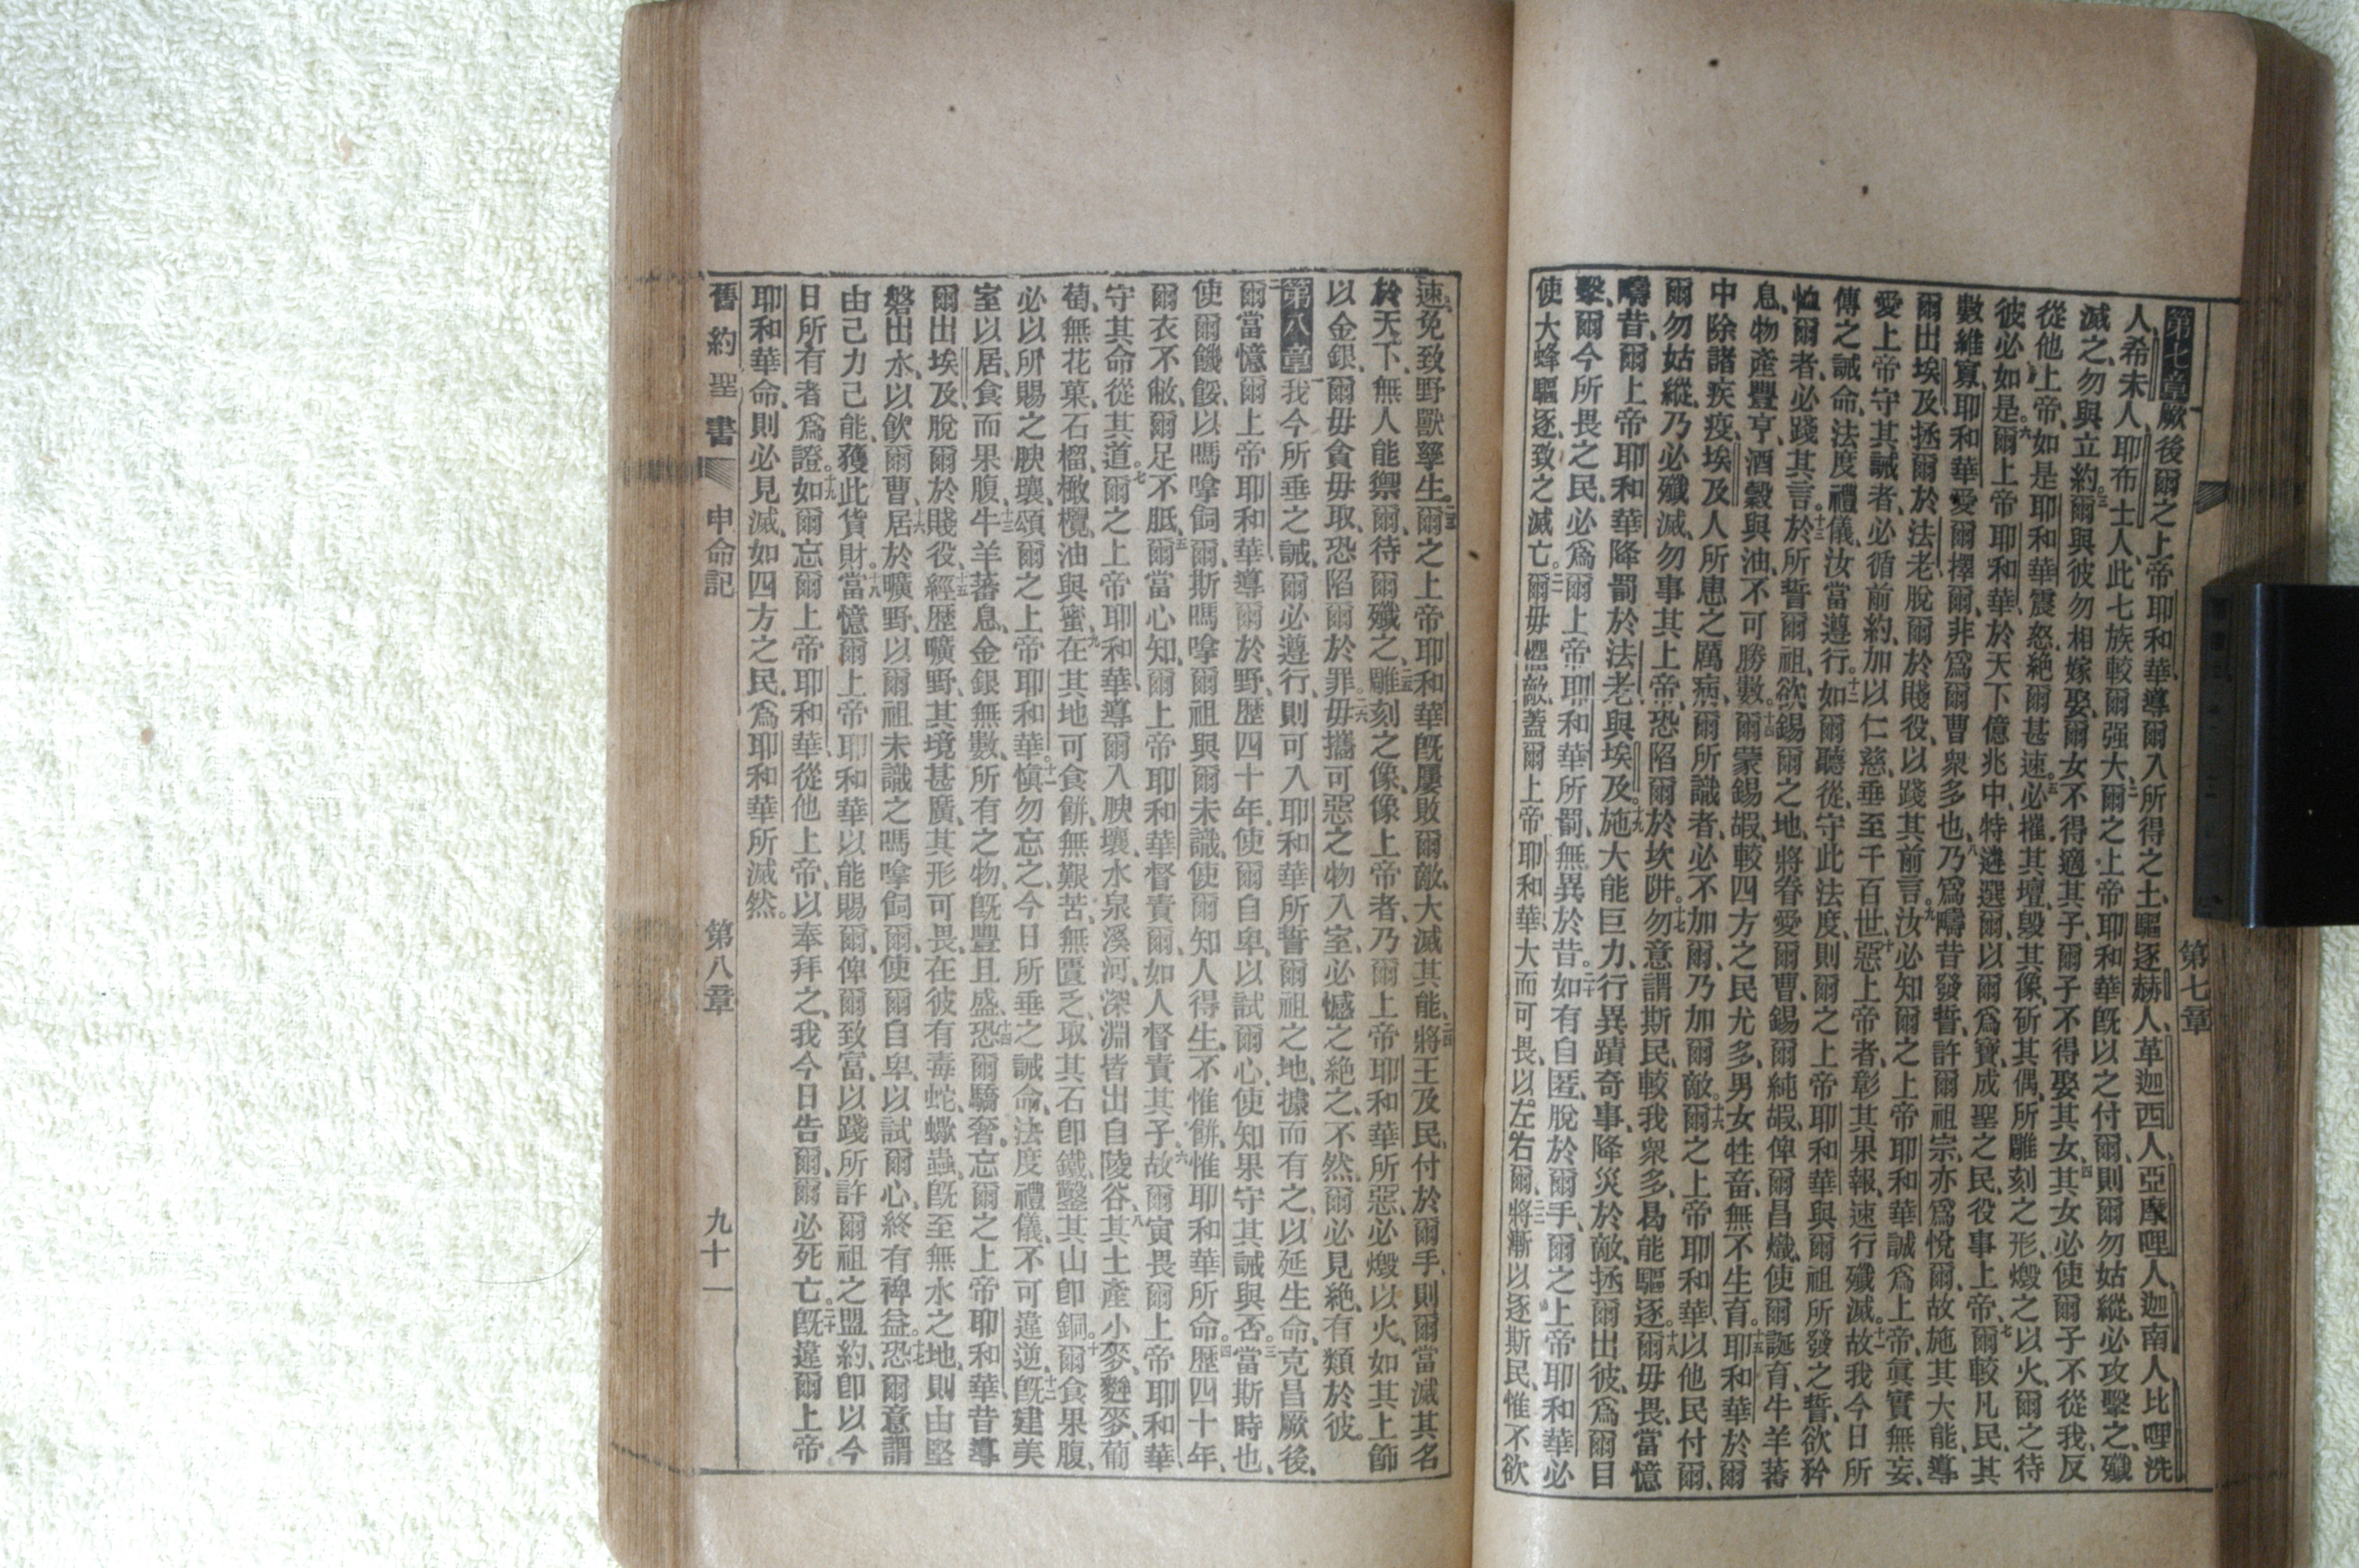 第七章
第七章一厥後爾之上帝耶和華導爾入所得之土驅逐赫人、革迦西人、亞摩哩人、迦南人、比哩洗
人、希未人、耶布士人、此七族較爾强大、二爾之上帝耶和華旣以之付爾、則爾勿姑縱、必攻擊之、殲
滅之、勿與立約。三爾與彼勿相嫁娶、爾女不得適其子、爾子不得娶其女、四其女必使爾子不從我、反
從他上帝、如是耶和華震怒、絕爾甚速。五必摧其壇、毀其像、斫其偶、所雕刻之形、燬之以火、爾之待
彼必如是。六爾上帝耶和華、於天下億兆中、特遴選爾、以爾爲寶、成聖之民、役事上帝、七爾較凡民、其
數維寡、耶和華愛爾擇爾、非爲爾曹衆多也、八乃爲疇昔發誓、許爾祖宗、亦爲悅爾、故施其大能、導
爾出埃及、拯爾於法老、脫爾於賤役、以踐其前言。九汝必知爾之上帝耶和華誠爲上帝、眞實無妄、
愛上帝守其誡者、必循前約、加以仁慈、垂至千百世、十惡上帝者、彰其果報、速行殲滅。十一故我今日所
傳之誡命、法度禮儀、汝當遵行。十二如爾聽從、守此法度、則爾之上帝耶和華與爾祖所發之誓、欲矜
恤爾者、必踐其言。十三於所誓爾祖、欲錫爾之地、將眷愛爾曹、錫爾純嘏、俾爾昌熾、使爾誕育、牛羊蕃
息、物產豐亨、酒穀與油、不可勝數。十四爾蒙錫嘏、較四方之民尤多、男女牲畜、無不生育。十五耶和華於爾
中除諸疾疫、埃及人所患之厲病、爾所識者、必不加爾、乃加爾敵。十六爾之上帝耶和華、以他民付爾、
爾勿姑縱、乃必殲滅、勿事其上帝、恐陷爾於坎阱。十七勿意謂斯民、較我衆多、曷能驅逐。十八爾毋畏、當憶
疇昔、爾上帝耶和華降罰於法老與埃及。十九施大能巨力、行異蹟奇事、降災於敵、拯爾出彼、爲爾目
擊、爾今所畏之民、必爲爾上帝耶和華所罰、無異於昔。二十如有自匿、脫於爾手、爾之上帝耶和華必
使大蜂驅逐、致之滅亡。二一爾毋懼敵、蓋爾上帝耶和華、大而可畏、以左右爾、二二將漸以逐斯民、惟不欲
速、免致野獸孳生。二三爾之上帝耶和華旣屢敗爾敵、大滅其能、二四將王及民、付於爾手、則爾當滅其名
於天下、無人能禦爾、待爾殲之、二五雕刻之像、像上帝者、乃爾上帝耶和華所惡、必燬以火、如其上節
以金銀、爾毋貪毋取、恐陷爾於罪。二六毋攜可惡之物入室、必憾之絕之、不然、爾必見絕、有類於彼。
第八章一我今所垂之誡、爾必遵行、則可入耶和華所誓爾祖之地、據而有之、以延生命、克昌厥後、
二爾當憶爾上帝耶和華、導爾於野、歷四十年、使爾自卑、以試爾心、使知果守其誡與否。三當斯時也、
使爾饑餒、以嗎嗱飼爾、斯嗎嗱爾祖與爾未識、使爾知人得生、不惟餅、惟耶和華所命。四歷四十年、
爾衣不敝、爾足不胝、五爾當心知、爾上帝耶和華督責爾、如人督責其子、六故爾寅畏爾上帝耶和華、
守其命、從其道。七爾之上帝耶和華、導爾入腴壤、水泉溪河、深淵皆出自陵谷、八其土產小麥、麰麥、葡
萄、無花菓、石榴、橄欖、油與蜜、九在其地可食餅、無艱苦、無匱乏、取其石卽鐵、鑿其山卽銅。十爾食果腹、
必以所賜之腴壤、頌爾之上帝耶和華。十一愼勿忘之、今日所垂之誡命、法度禮儀、不可違逆、十二旣建美
室以居、食而果腹、十三牛羊蕃息、金銀無數、所有之物、旣豐且盛、十四恐爾驕奢、忘爾之上帝耶和華、昔導
爾出埃及、脫爾於賤役、十五經歷曠野、其境甚廣、其形可畏、在彼有毒蛇、蠍蟲、旣至無水之地、則由堅
磐出水、以飮爾曹、十六居於曠野、以爾祖未識之嗎嗱飼爾、使爾自卑、以試爾心、終有裨益。十七恐爾意謂
由己力己能、獲此貨財。十八當憶爾上帝耶和華以能賜爾、俾爾致富、以踐所許爾祖之盟約、卽以今
日所有者爲證。十九如爾忘爾上帝耶和華、從他上帝、以奉拜之、我今日告爾、爾必死亡。二十旣違爾上帝
耶和華命、則必見滅、如四方之民、爲耶和華所滅然。
舊約聖書 申命記 第八章 九十一